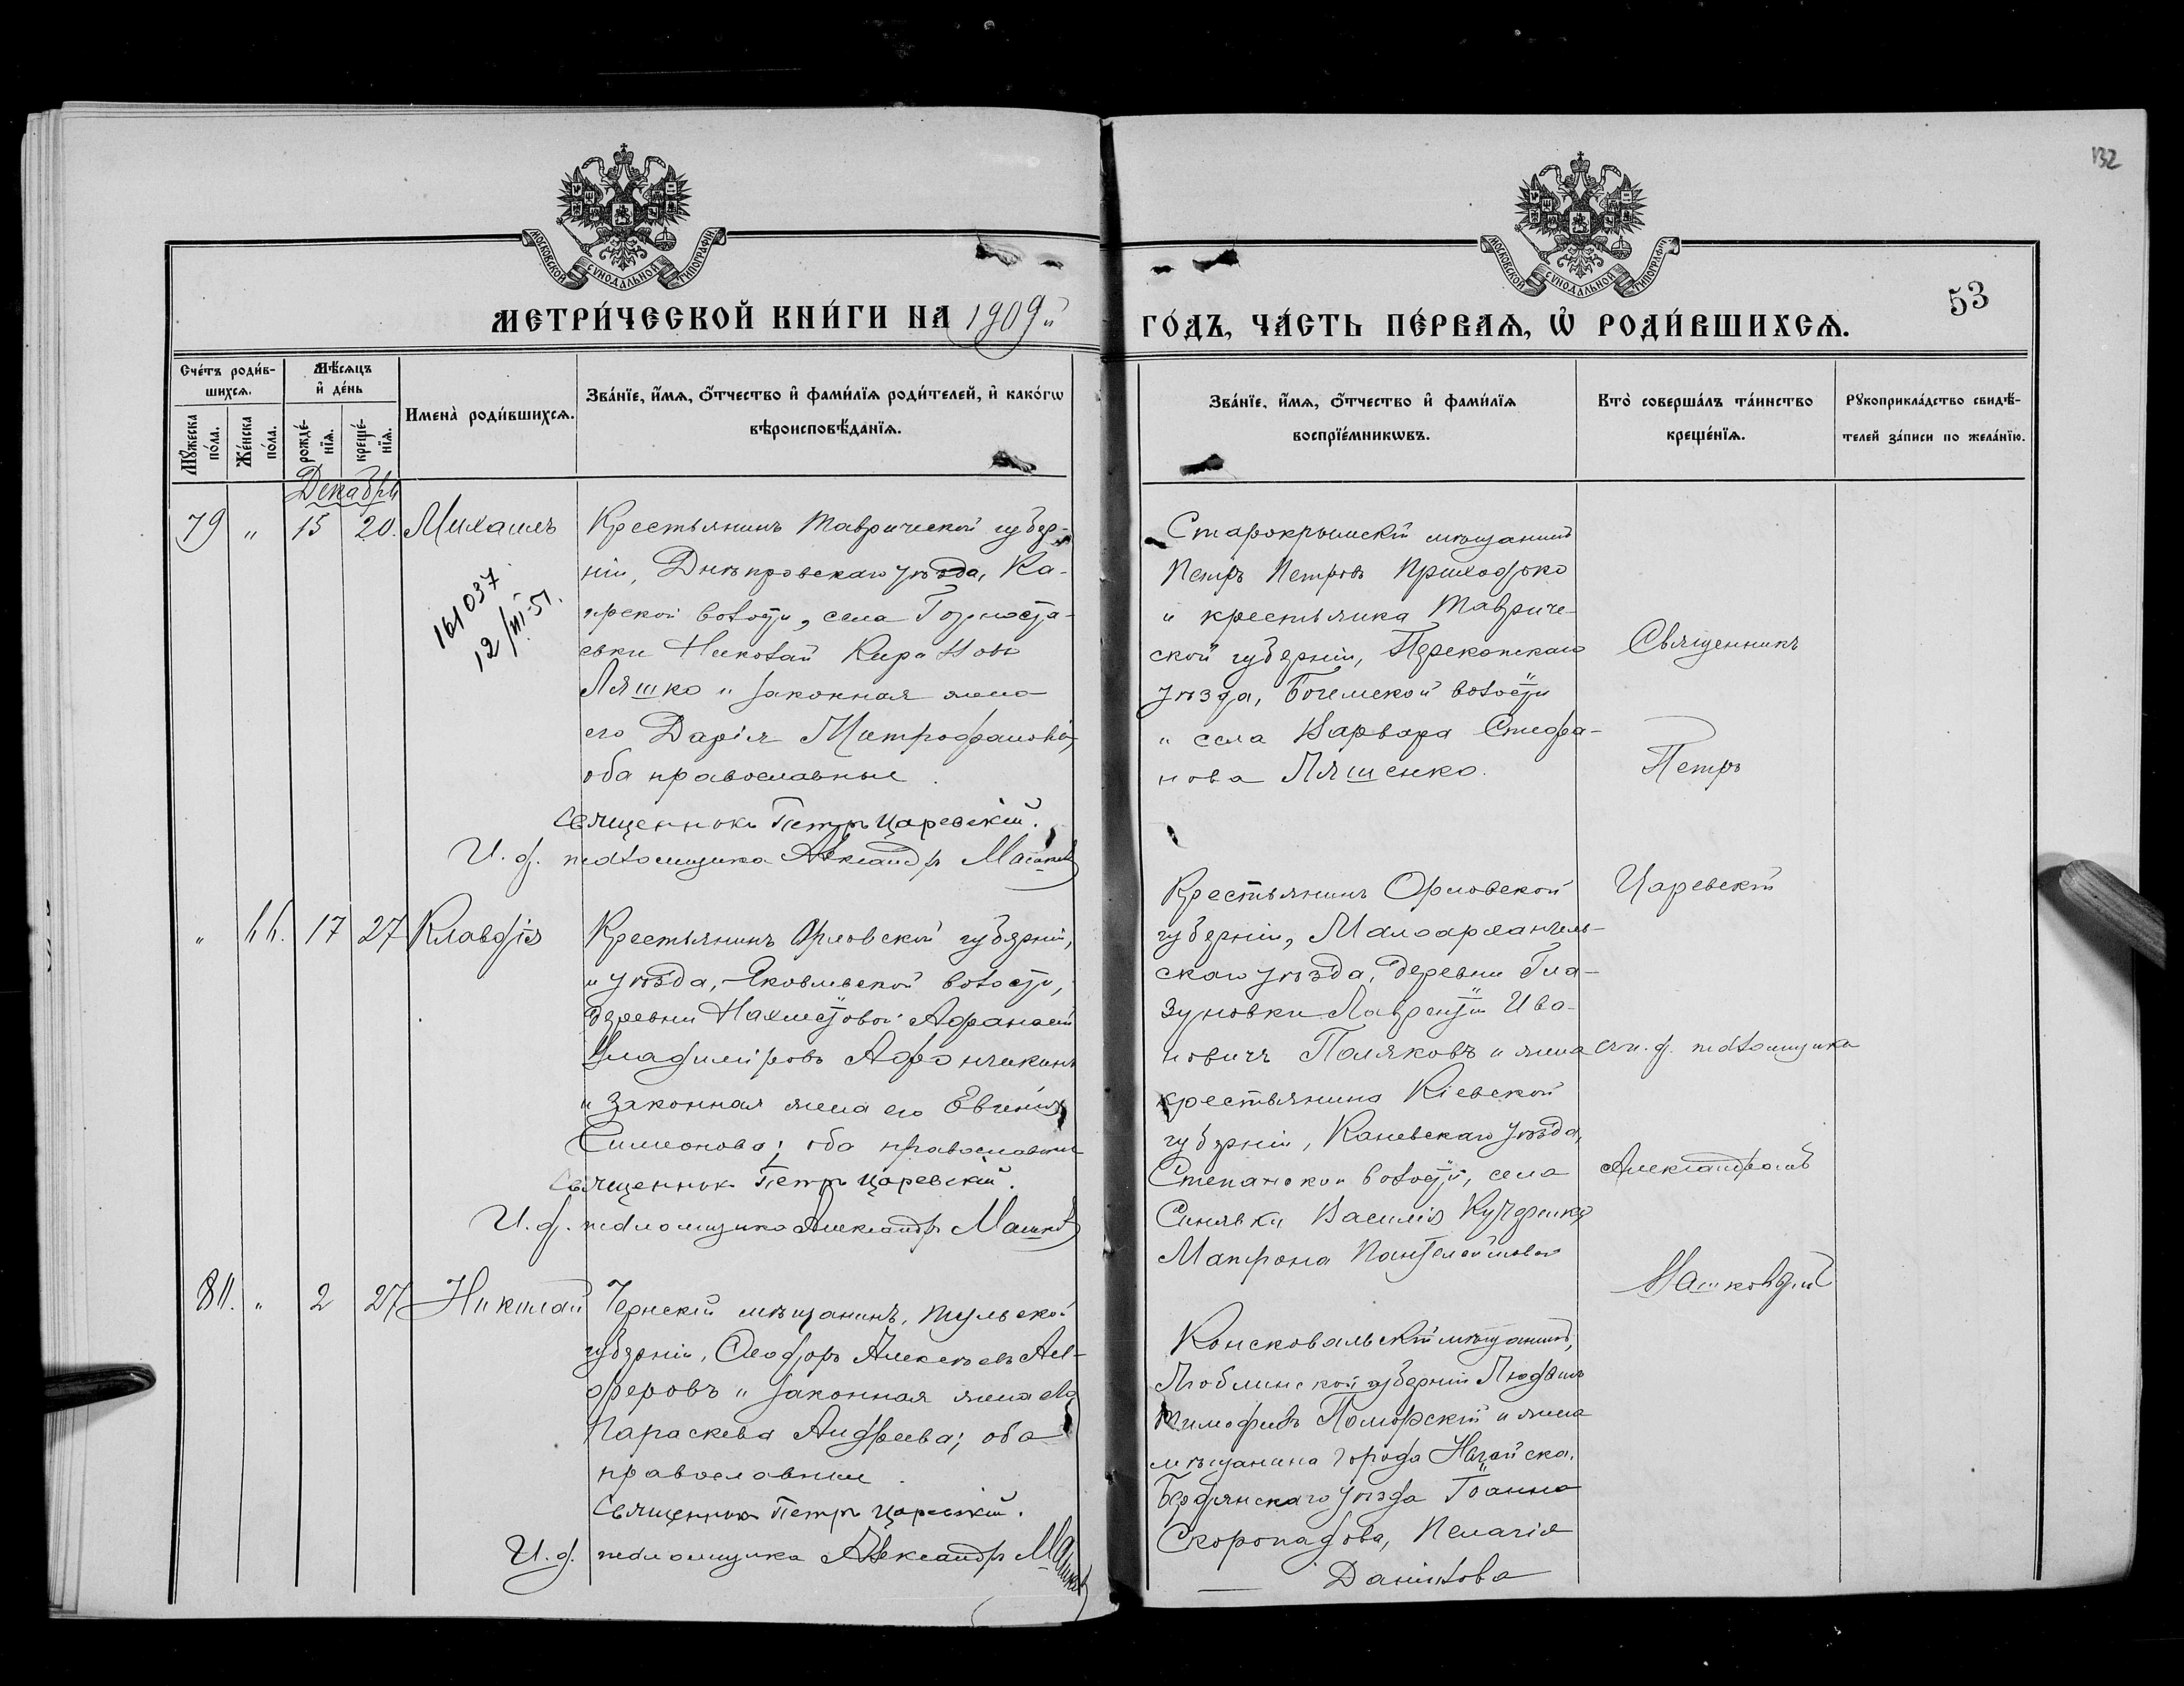 132
МОСКОВСКОЙ СУНОДАЛЬНОЙ ТИПОГРАФІИ
МОСКОВСКОЙ СУНОДАЛЬНОЙ ТИПОГРАФІИ
53
МЕТРИ́ЧЕСКОЙ КНИ́ГИ НА 1909й
ГО́ДЪ, ЧА́СТЬ ПЕ́РВАЯ, Ѡ РОДИ́ВШИХСЯ.
Сче́тъ роди́в-
шихся.
Мѣ́сяцъ
и де́нь
Му́жеска
по́ла.
Же́нска
по́ла.
рожде́-
нія.
креще́-
нія.
Имена̀ роди́вшихся.
Зва́нїе, и́мя, ѻ́тчество и фами́лїя роди́телей, и како́гѡ
вѣроисповѣ́данїя.
Зва́нїе, и́мя, ѻ́тчество и фами́лїя
воспрїе́мникѡвъ.
Кто̀ соверша́лъ та́инство
креще́нїя.
Рꙋкоприкла́дство свидѣ́-
телей за́писи по жела́нїю.
Декабрь
79 " 15 20. Михаилъ
161037
12/III-51.
Крестьянинъ Таврической губер-
ніи, Днѣпровскаго уѣзда, Ка-
ирской волости, села Горноста-
евки Николай Кирилловъ
Ляшко и законная жена
его Дарія Митрофанова,
оба православные.
Священникъ Петръ Царевскій.
И. д. псаломщика Александръ
Старокрымскій мѣщанинъ
Петръ Петровъ Приходько
и крестьянка Тавриче-
ской губерніи, Перекопскаго
уѣзда, Богемской волости
и села Варвара Стефа-
нова Ляшенко.
Священникъ
Петръ
Царевскій
и. д. псаломщика
Александромъ
" 17 27 Клавдія
Крестьянинъ Орловской губерніи,
и уѣзда, Яковлевской волости,
деревни Афанасій
Владиміровъ Афоничкинъ
и законная жена его Евгенія
Симеонова; оба православные
Священникъ Петръ Царевскій.
И. д. псаломщика Александръ
Крестьянинъ Орловской
губерніи, Малоархангель-
скаго уѣзда, деревни Гла-
зуновки Лаврентій Ива-
новичъ Поляковъ и жена
крестьянина Кіевской
губерніи, Каневскаго уѣзда,
Степанской волости, села
Синявки Василія
Матрона Пантелеймонова
80. " 2 27 Николай
Чернскій мѣщанинъ, Тульской
губерніи, Ѳеодоръ Алексѣевъ Ал-
феровъ и законная жена его
Параскева Андреева; оба
православные.
Священникъ Петръ Царевскій.
И. д. псаломщика Александръ
Консковальскій мѣщанинъ,
Люблинской губерніи
Тимофеевъ Поморскій и жена
мѣщанина города Ногайска,
Бердянскаго уѣзда Іоанна
Скоропадова, Пелагія
Данилова